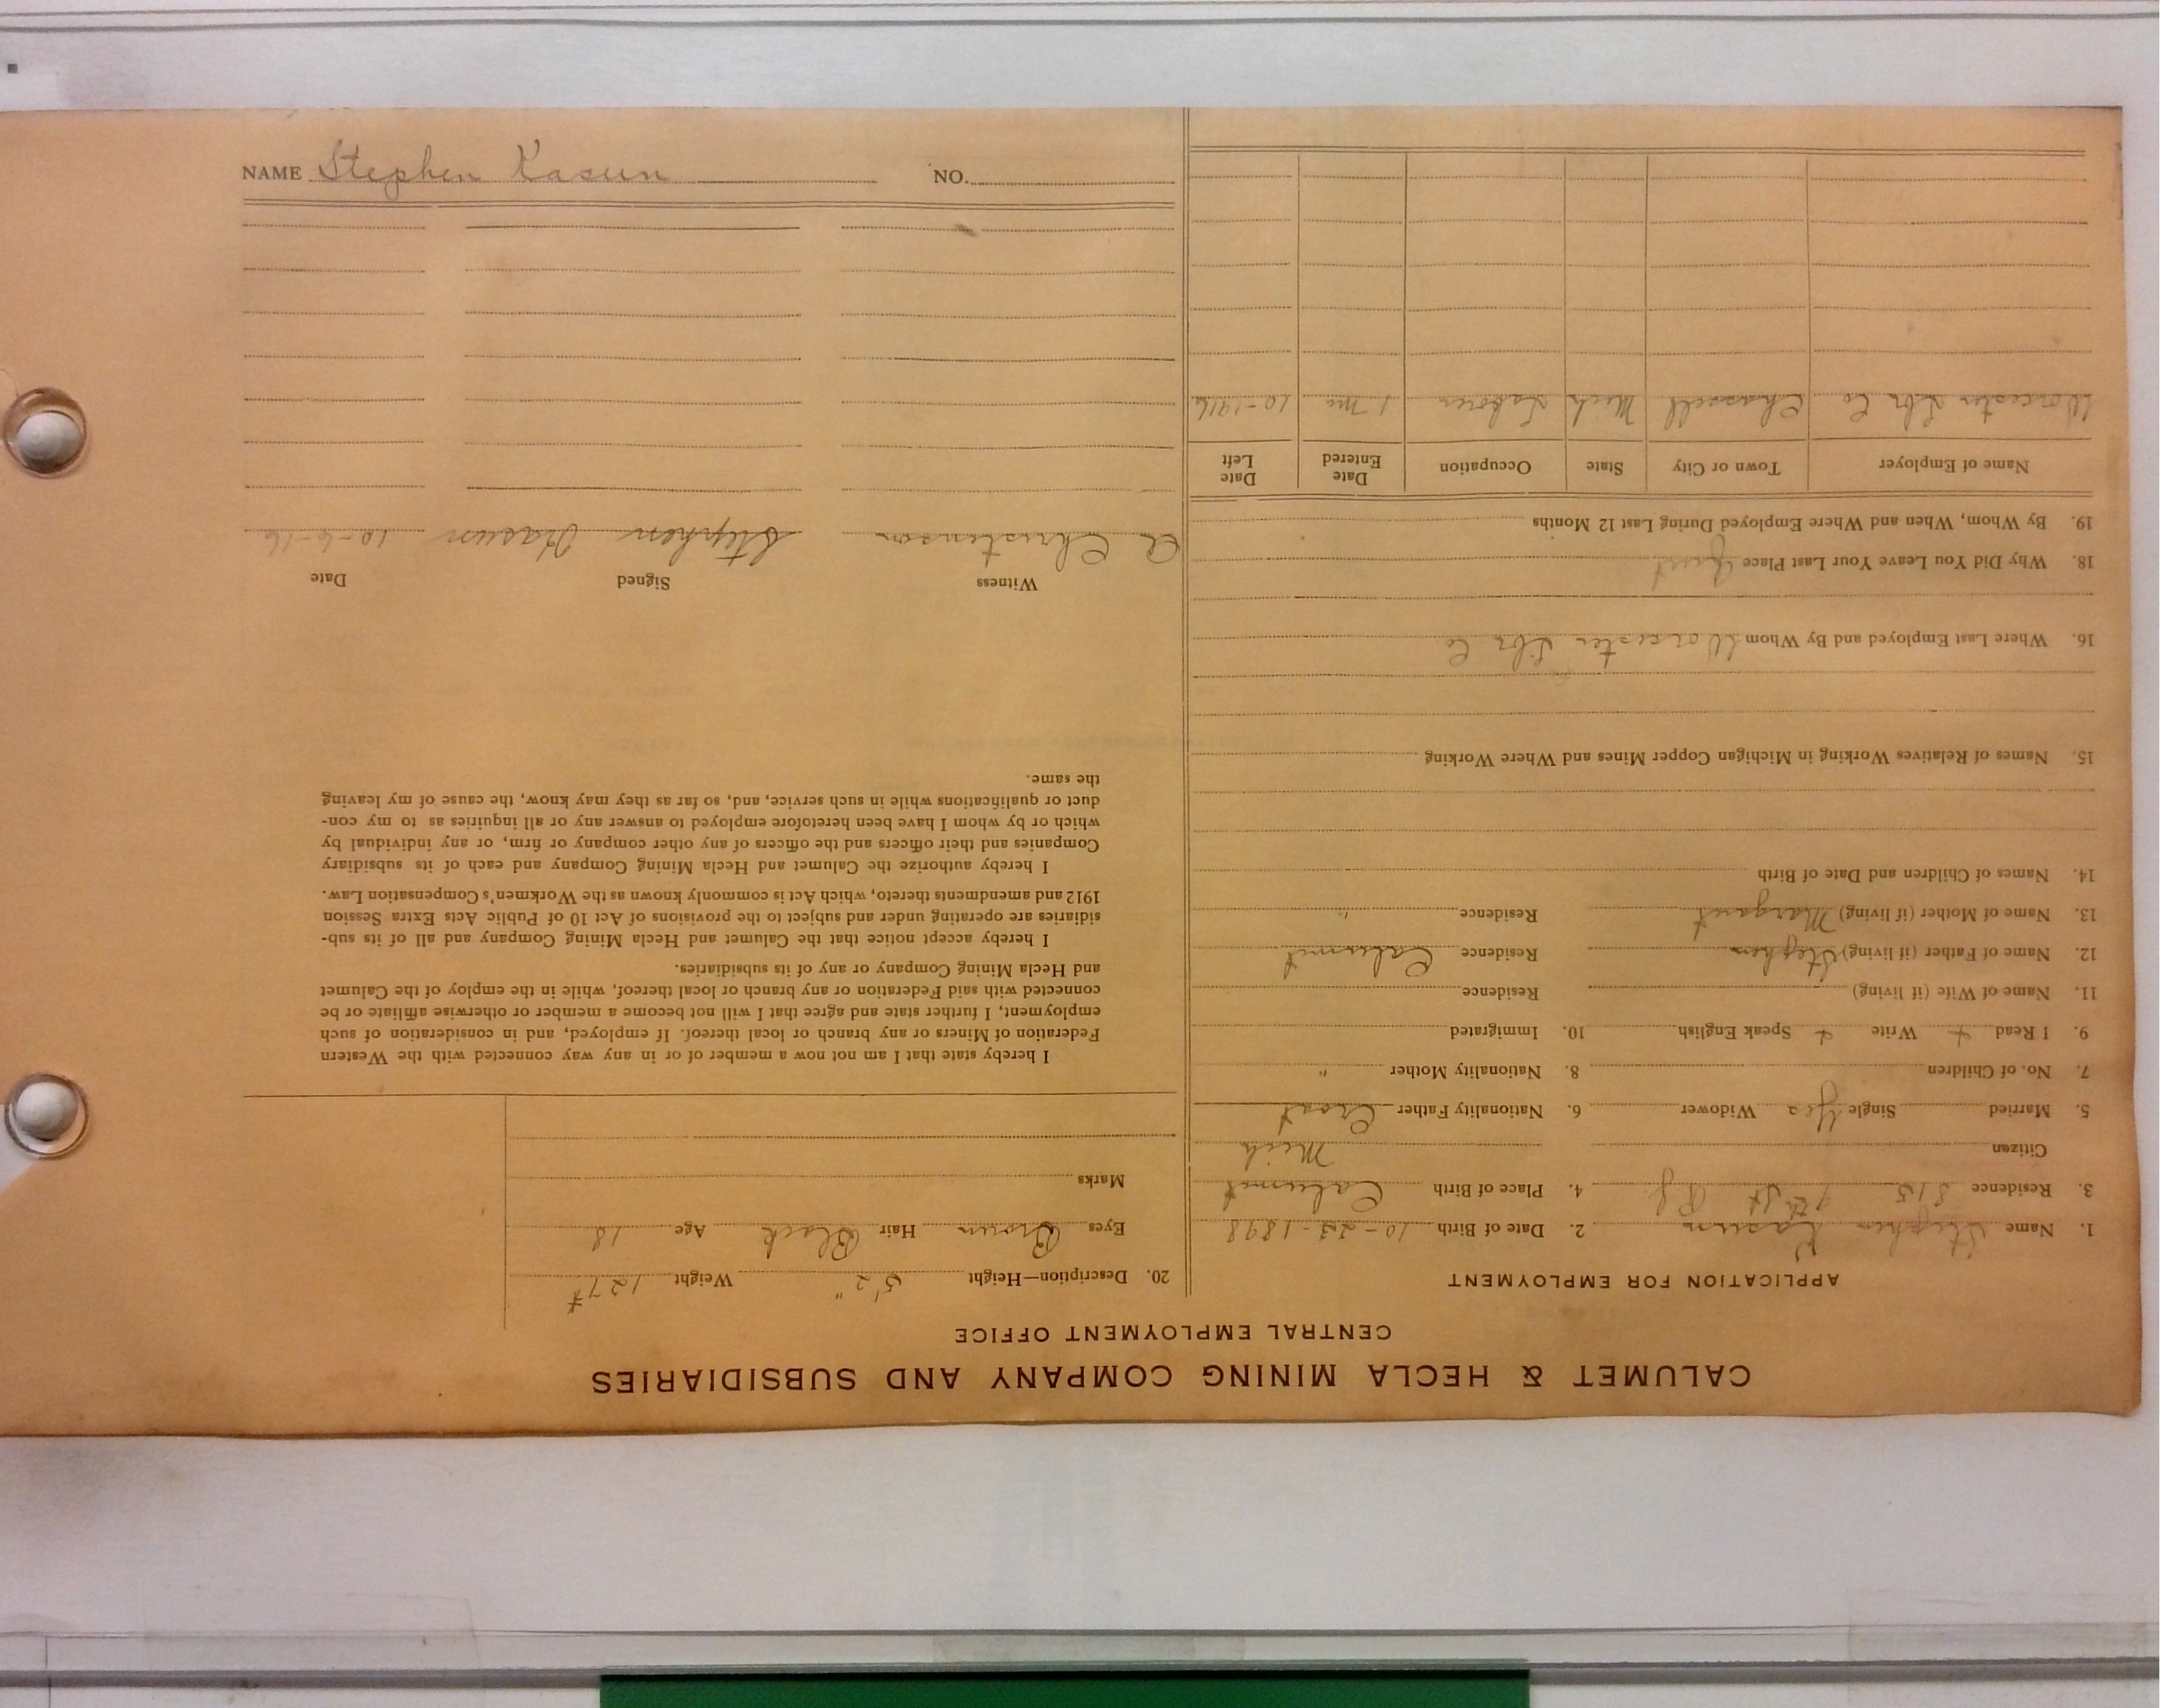 CALUMET & HECLA MINING COMPANY AND SUBSIDIARIES
CENTRAL EMPLOYMENT OFFICE
APPLICATION FOR EMPLOYMENT
1. Name Stephen Kasun 2. Date of Birth 10-23-1898
3. Residence 815 9th St 4. Place of Birth Calumet
Citizen Mich
5. Married Single Yes Widower 6. Nationality Father Croat
7. No. of Children 8. Nationality Mother "
9. I Read + Write + Speak English 10. Immigrated
11. Name of Wife (if living) Residence
12. Name of Father (if living) Stephen Residence Calumet
13. Name of Mother (if living) Margaret Residence "
14. Names of Children and Date of Birth
15. Names of Relatives Working in Michigan Copper Mines and Where Working
16. Where Last Employed and By Whom Worcester Lbr Co
18. Why Did You Leave Your Last Place Quit
19. By Whom, When and Where Employed During Last 12 Months
Name of Employer Town or City State Occupation Date Entered Date Left
Worcester Lbr Co Chassell Mich Laborer 1 Mo 10-1916
20. Description—Height 5'2" Weight 127#
Eyes Brown Hair Black Age 18
Marks
I hereby state that I am not now a member of or in any way connected with the Western
Federation of Miners or any branch or local thereof. If employed, and in consideration of such
employment, I further state and agree that I will not become a member or otherwise affiliate or be
connected with said Federation or any branch or local thereof, while in the employ of the Calumet
and Hecla Mining Company or any of its subsidiaries.
I hereby accept notice that the Calumet and Hecla Mining Company and all of its sub-
sidiaries are operating under and subject to the provisions of Act 10 of Public Acts Extra Session
1912 and amendments thereto, which Act is commonly known as the Workmen's Compensation Law.
I hereby authorize the Calumet and Hecla Mining Company and each of its subsidiary
Companies and their officers and the officers of any other company or firm, or any individual by
which or by whom I have been heretofore employed to answer any or all inquiries as to my con-
duct or qualifications while in such service, and, so far as they may know, the cause of my leaving
the same.
Witness Signed Date
A Christenson Stephen Kasun 10-6-16
NAME Stephen Kasun NO.